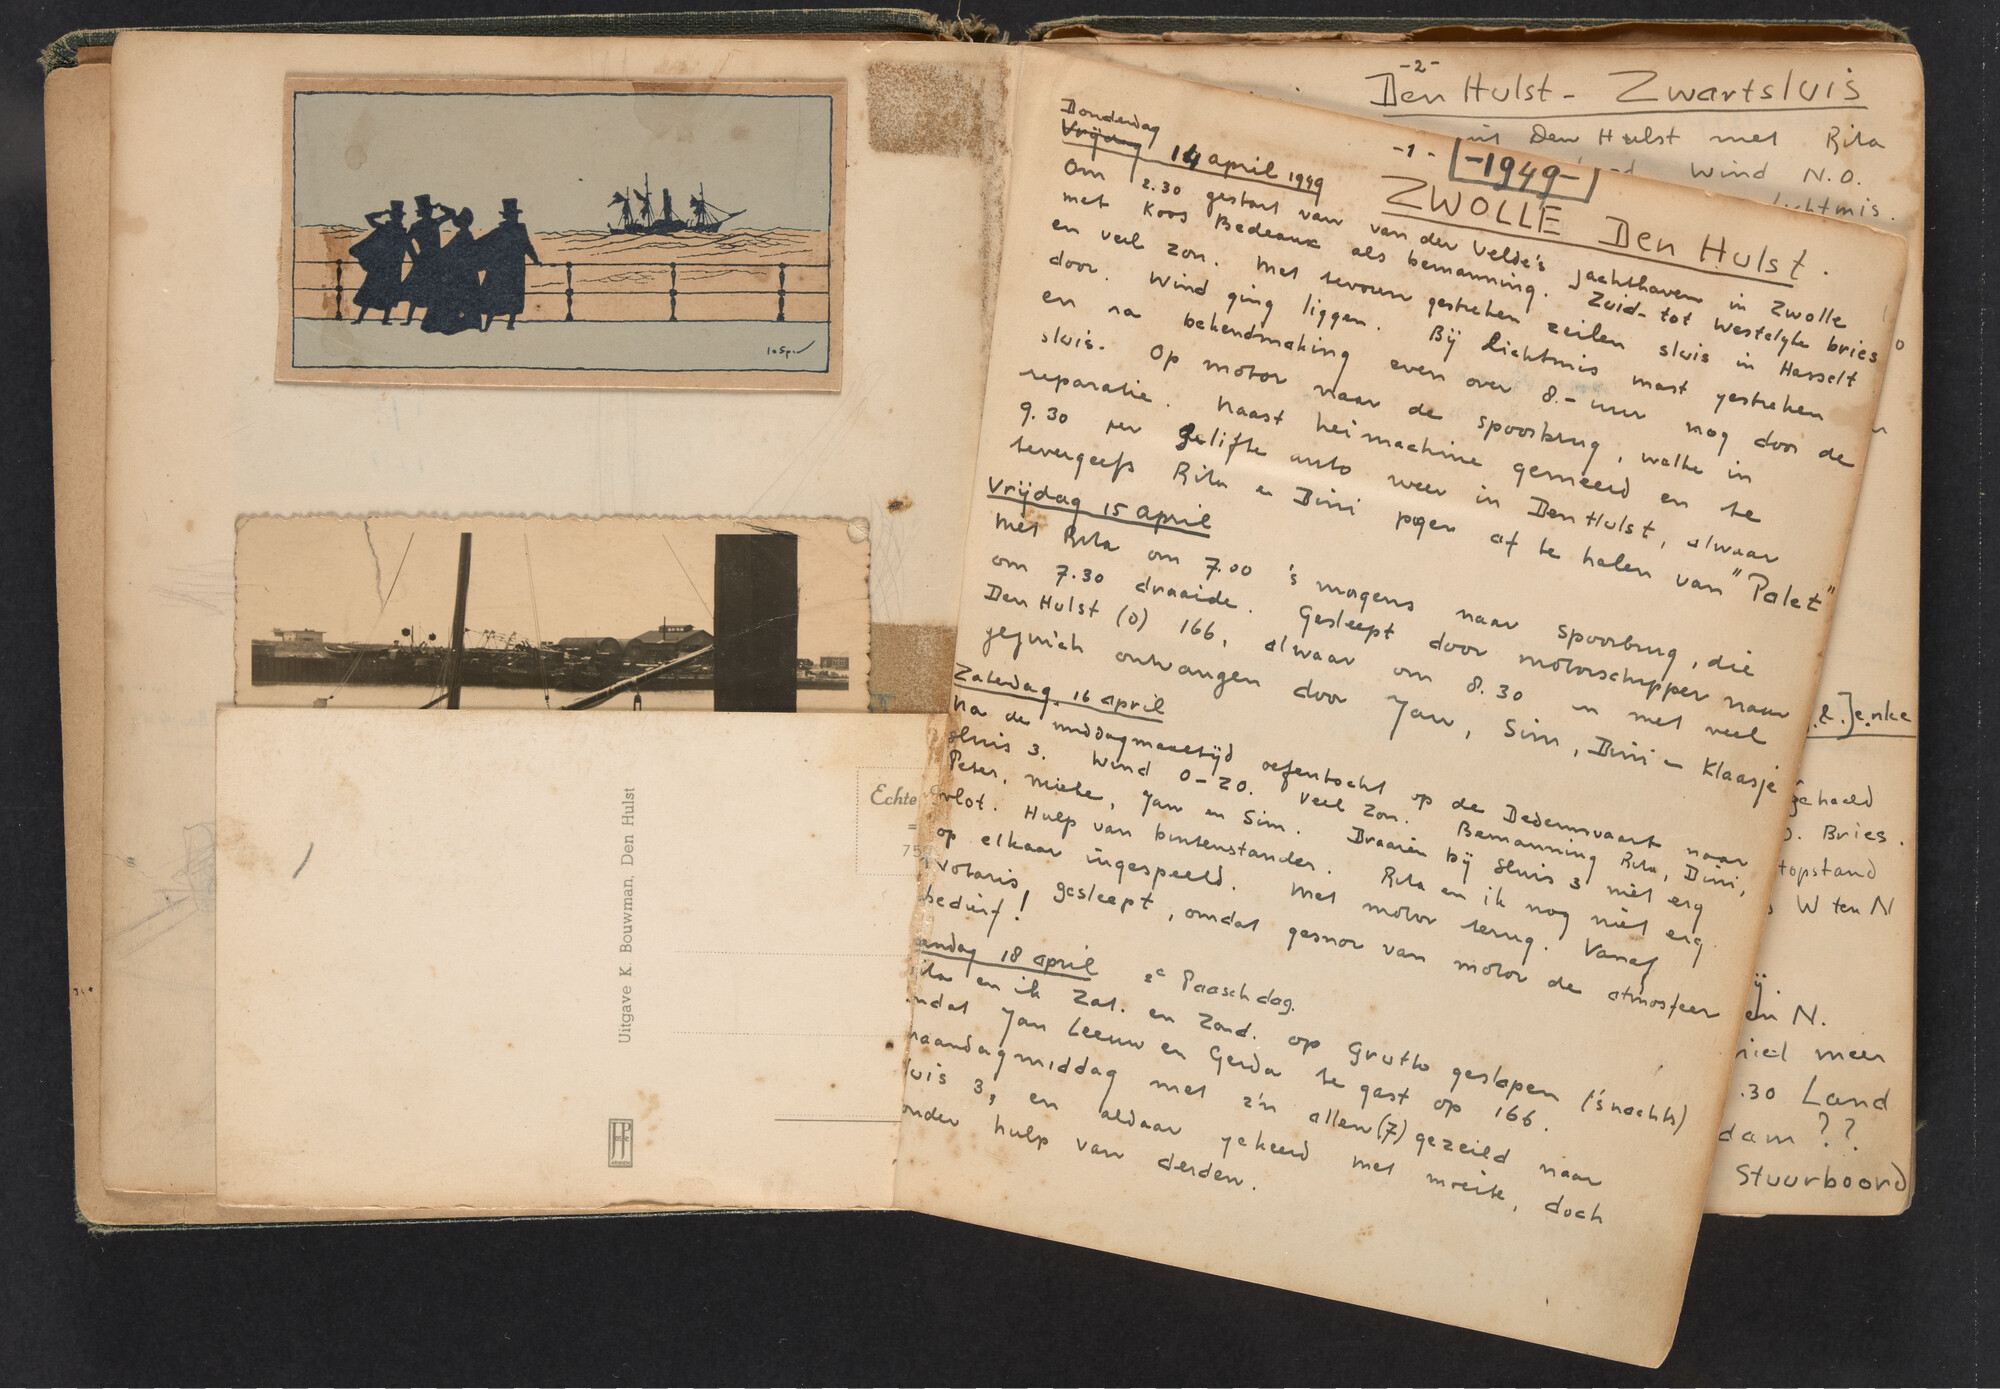 -2-
Den Hulst - Zwartsluis
uit Den Hulst met Rita
Wind N.O.
Lichtmis.
-1- -1949-
ZWOLLE Den Hulst.
Donderdag
Vrijdag 14 april 1949
Om 2.30 gestart van van der Velde's jachthaven in Zwolle
met Koos Bedeaux als bemanning. Zuid- tot Westelyke bries
en veel zon. Met tevoren gestreken zeilen sluis in Hasselt
door. Wind ging liggen. Bij Lichtmis mast gestreken
en na bekendmaking even over 8.- uur nog door de
sluis. Op motor naar de spoorbrug, welke in
reparatie. Naast heimachine gemeerd en te
9.30 per gelifte auto weer in Den Hulst, alwaar
tevergeefs Rita en Dini pogen af te halen van "Palet"
Vrijdag 15 april
Met Rita om 7.00 's morgens naar spoorbrug, die
om 7.30 draaide. Gesleept door motorschipper naar
Den Hulst (O) 166, alwaar om 8.30 en met veel
gejuich ontvangen door Jan, Sim, Dini en Klaasje
Zaterdag 16 april
Na de middagmaaltijd oefentocht op de Dedemsvaart naar
sluis 3. Wind O-ZO. Veel zon. Bemanning Rita, Dini,
Peter, Mieke, Jan en Sim. Draaien bij sluis 3 niet erg
vlot. Hulp van buitenstander. Rita en ik nog niet erg
op elkaar ingespeeld. Met motor terug. Vanaf
Notaris gesleept, omdat gesnor van motor de atmosfeer
bedierf!
andag 18 april 2e Paaschdag.
ita en ik Zat. en Zond. op Grutto geslapen ('s nachts)
mdat Jan Leeuw en Gerda te gast op 166.
maandagmiddag met z'n allen (7) gezeild naar
luis 3, en aldaar gekeerd met moeite, doch
onder hulp van derden.
& Jenke
gehaald
O. Bries.
topstand
W ten N
ij.
en N.
niet meer
.30 Land
dam ??
Stuurboord
Echte
=
75
Uitgave K. Bouwman, Den Hulst